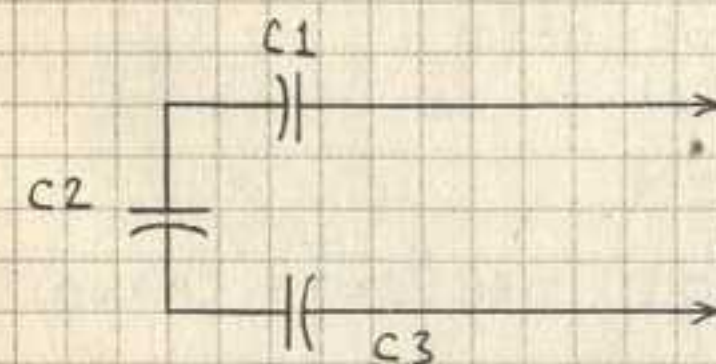 C1
C2
C3